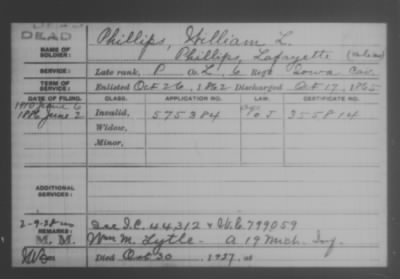 DEAD
Phillips, William L.
NAME OF SOLDIER:
Phillips, Lafayette (alias)
SERVICE:
Late rank, P Co. L, 6 Reg't Iowa Cav.
TERM OF SERVICE:
Enlisted Oct 26, 1862 Discharged Oct 17, 1865
DATE OF FILING. CLASS. APPLICATION NO. LAW. CERTIFICATE NO.
1886 June 2 Invalid, 575384 355814
Widow,
Minor,
ADDITIONAL SERVICES:
See I.C. 44312 & W.C. 799059
REMARKS:
M. M. Wm M. Lytle - A 19 Mich. Inf.
Died Oct 30, 1927, at